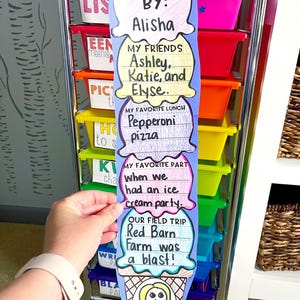 BY:
Alisha
MY FRIENDS
Ashley,
Katie, and
Elyse.
MY FAVORITE LUNCH
Pepperoni
pizza
MY FAVORITE PART
when we
had an ice
cream party.
OUR FIELD TRIP
Red Barn
Farm was
a blast!